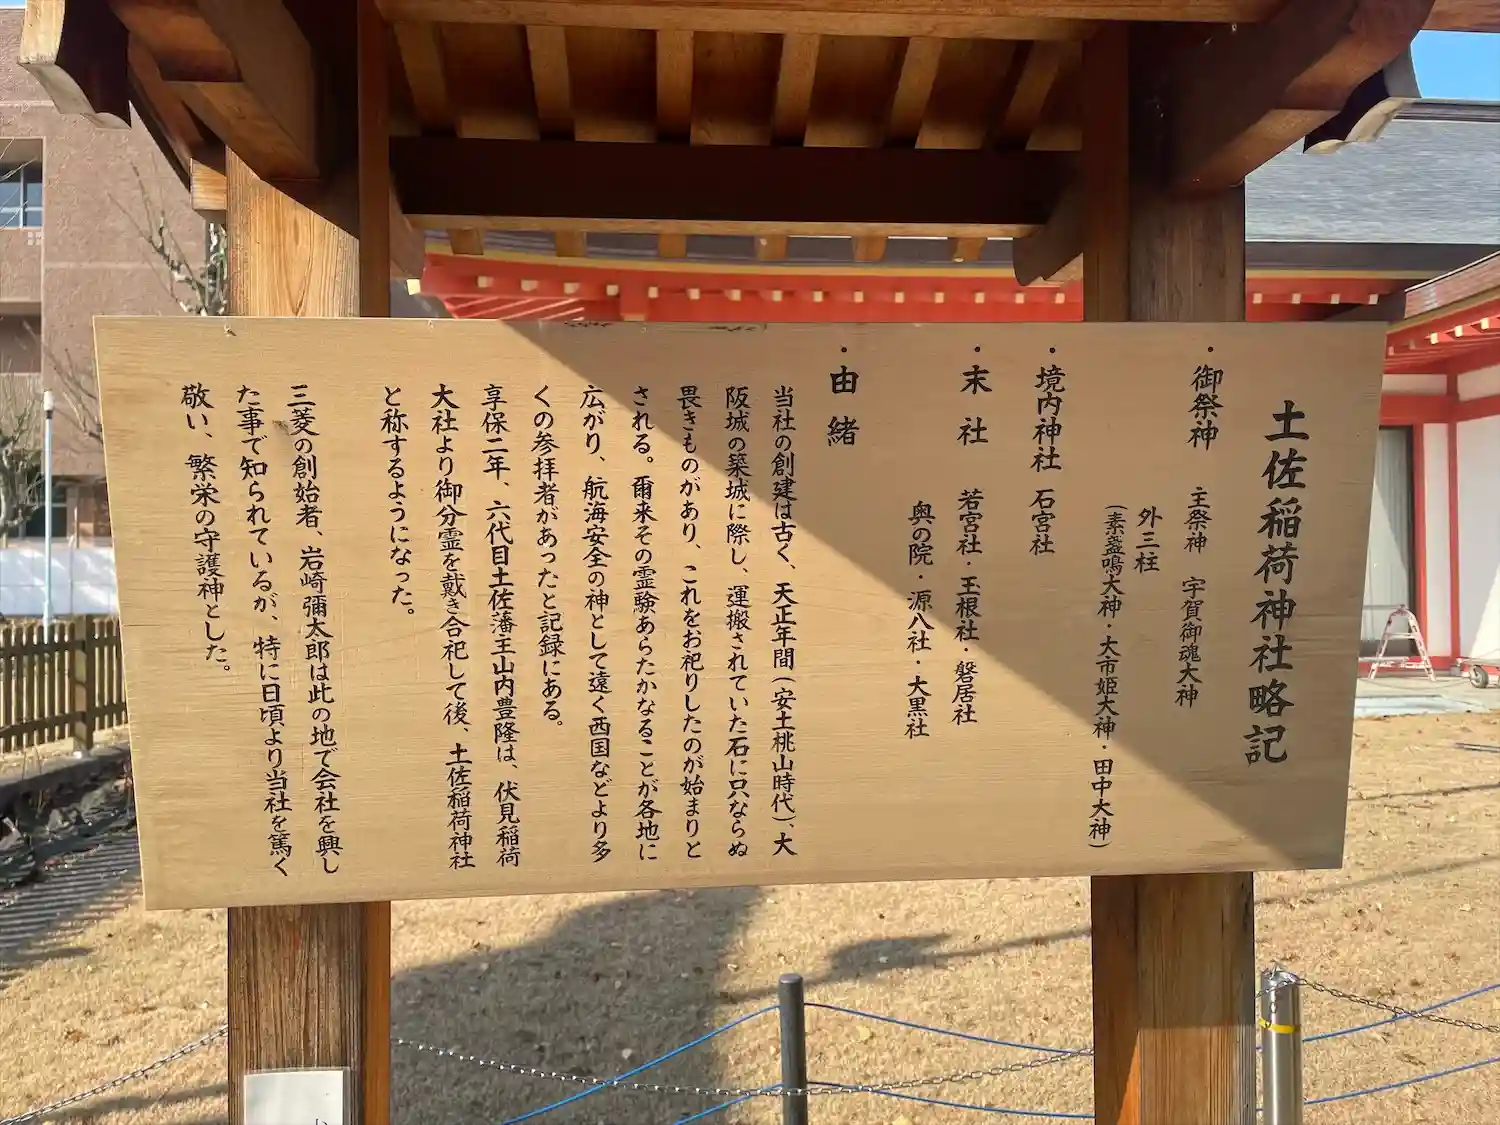 土佐稲荷神社略記
・御祭神 主祭神 宇賀御魂大神
外三柱
(素盞鳴大神・大市姫大神・田中大神)
・境内神社 石宮社
・末社 若宮社・玉根社・磐居社
奥の院・源八社・大黒社
・由緒
当社の創建は古く、天正年間(安土桃山時代)、大
阪城の築城に際し、運搬されていた石に只ならぬ
畏きものがあり、これをお祀りしたのが始まりと
される。爾来その霊験あらたかなることが各地に
広がり、航海安全の神として遠く西国などより多
くの参拝者があったと記録にある。
享保二年、六代目土佐藩主山内豊隆は、伏見稲荷
大社より御分霊を戴き合祀して後、土佐稲荷神社
と称するようになった。
三菱の創始者、岩崎彌太郎は此の地で会社を興し
た事で知られているが、特に日頃より当社を篤く
敬い、繁栄の守護神とした。